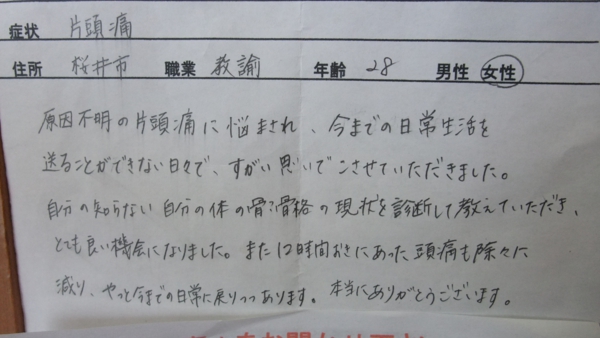 症状 片頭痛
住所 桜井市 職業 教諭 年齢 28 男性 女性
原因不明の片頭痛に悩まされ、今までの日常生活を
送ることができない日々で、すがい思いでこさせていただきました。
自分の知らない自分の体の骨や骨格の現状を診断して教えていただき、
とても良い機会になりました。また12時間おきにあった頭痛も除々に
減り、やっと今までの日常に戻りつつあります。本当にありがとうございます。